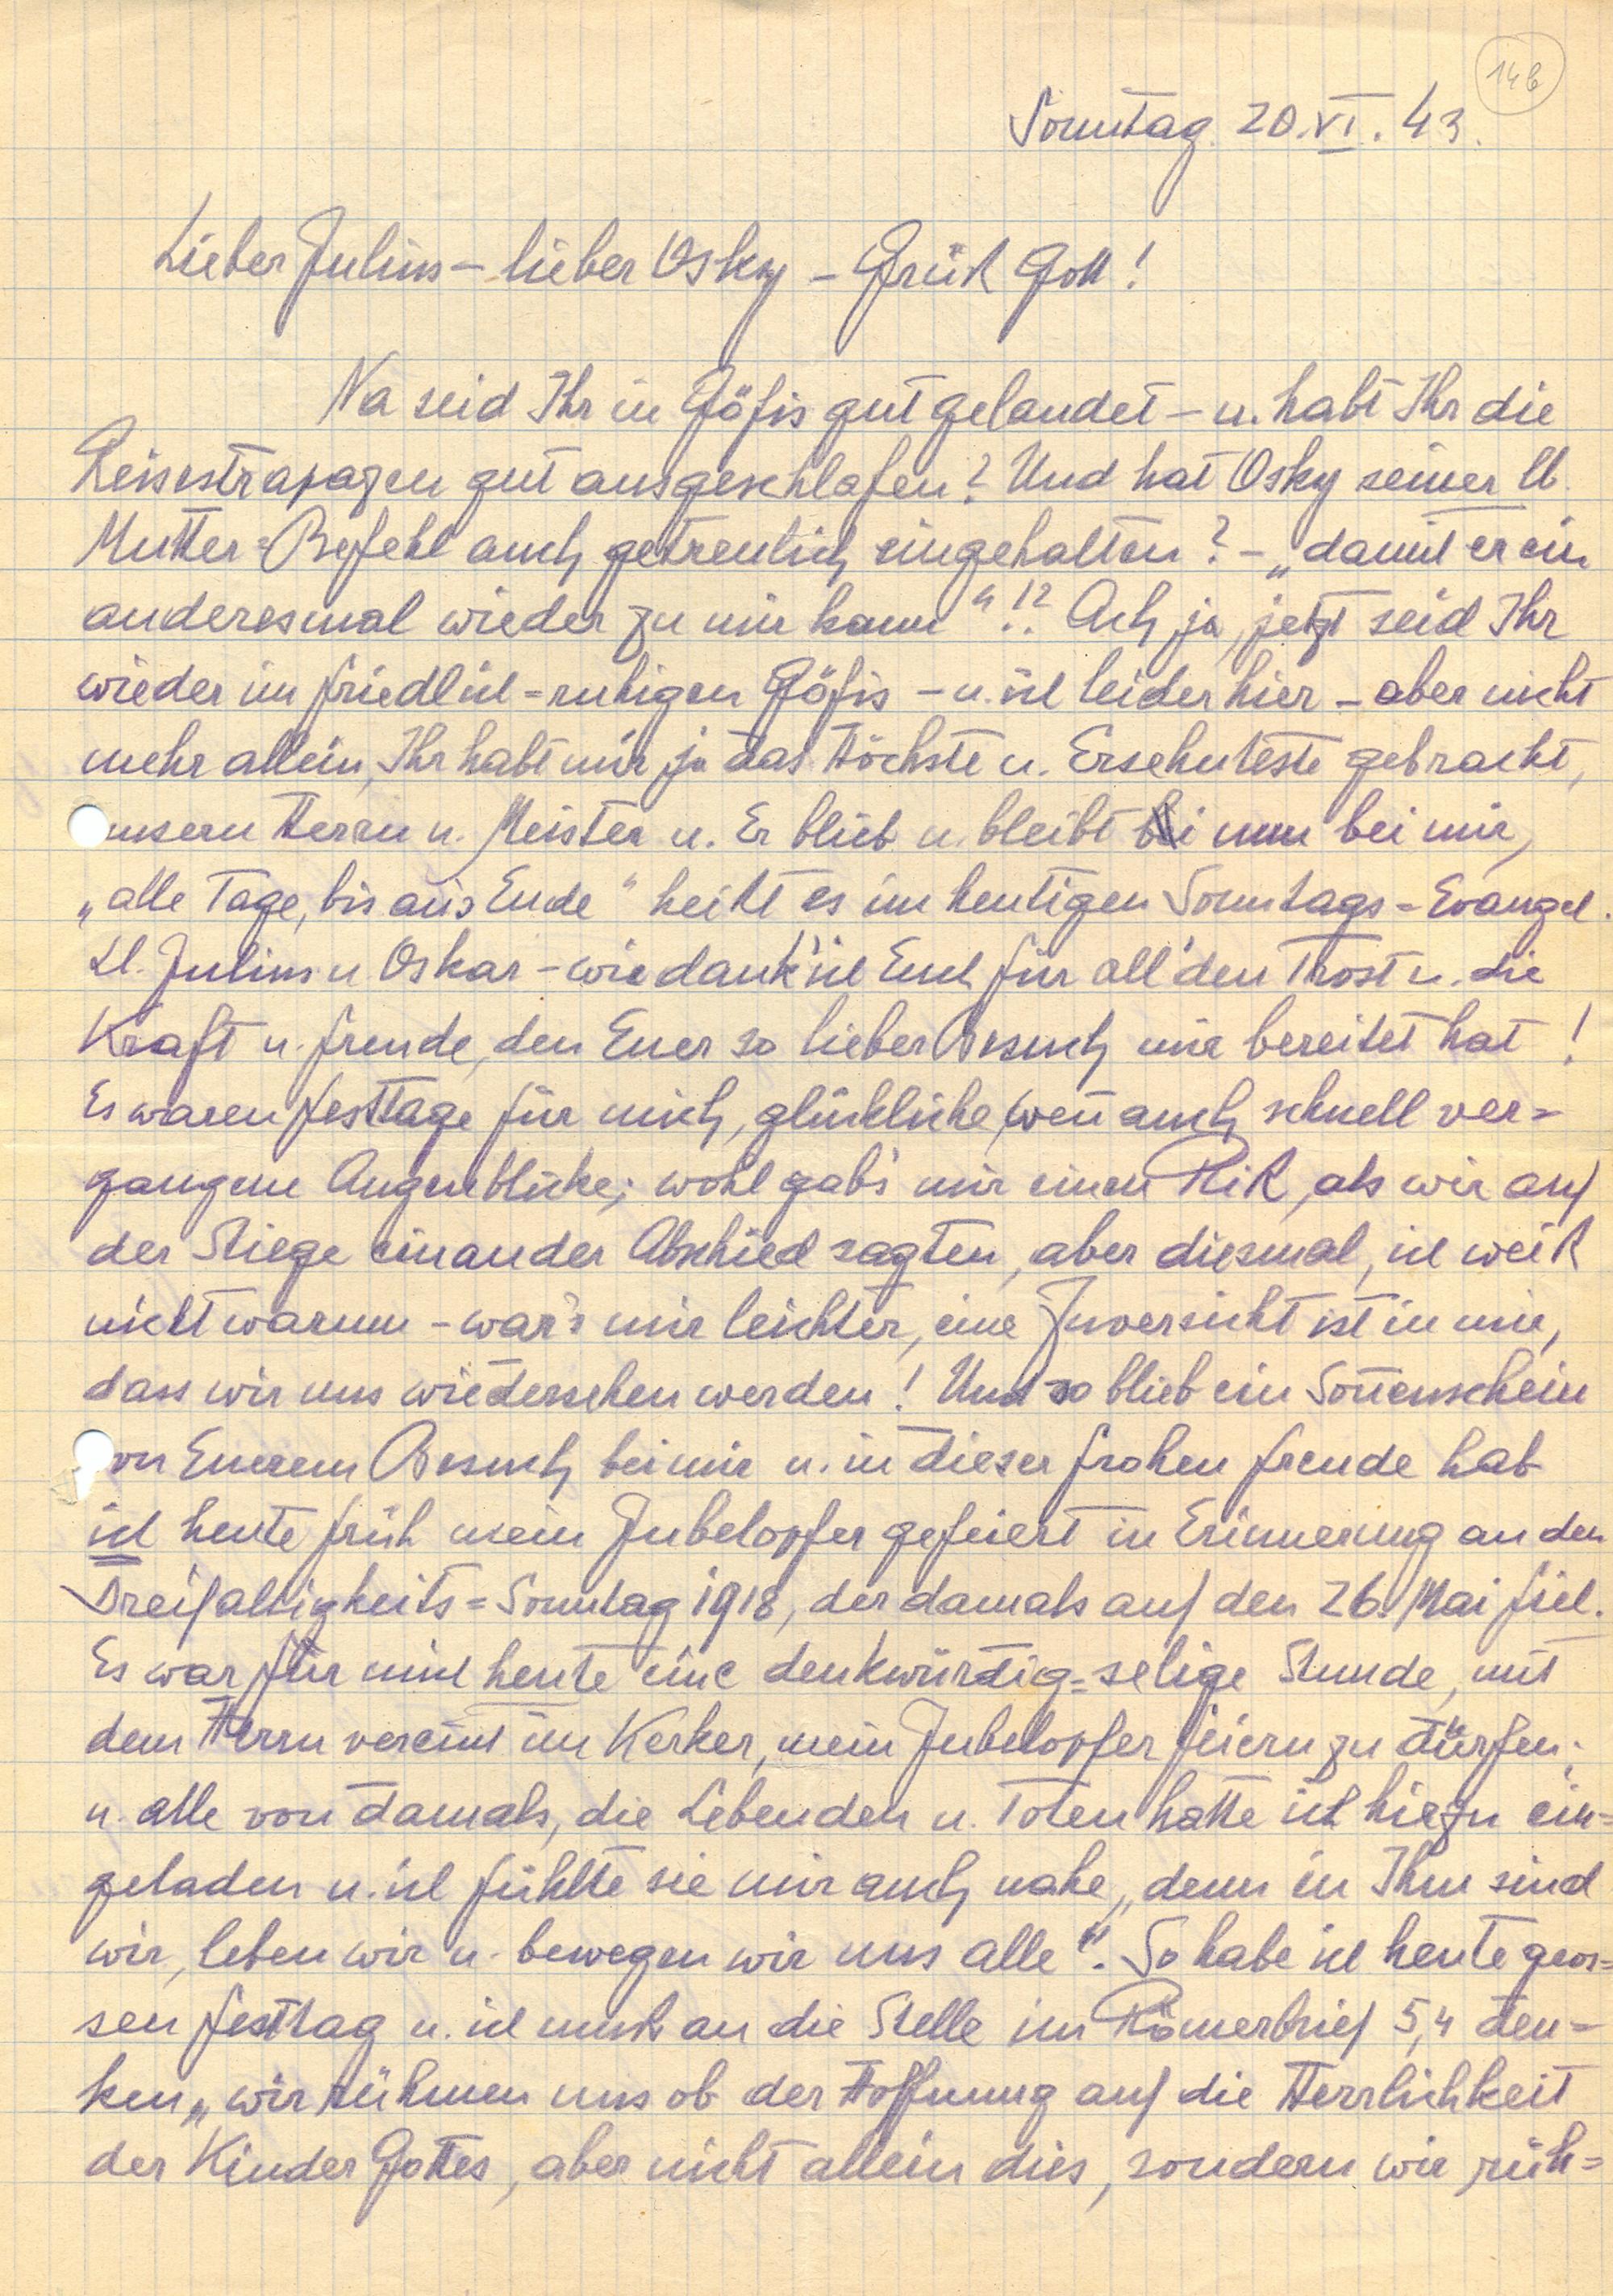 14b
Sonntag 20.VI.43.
Lieber Julius – lieber Osky – Grüß Gott!
Na seid Ihr in Göfis gut gelandet – u. habt Ihr die
Reisestrapazen gut ausgeschlafen? Und hat Osky seiner lb.
Mutter=Befehl auch getreulich eingehalten? – „damit er ein
anderesmal wieder zu mir kann“!? Ach ja, jetzt seid Ihr
wieder im friedlich=ruhigen Göfis – u. ich leider hier – aber nicht
mehr allein, Ihr habt mir ja das Höchste u. Ersehnteste gebracht,
unsern Herrn u. Meister u. Er blieb u. bleibt nun bei mir,
„alle Tage, bis ans Ende“ heißt es im heutigen Sonntags=Evangel.
Ll. Julius u Oskar – wie dank' ich Euch für all' den Trost u. die
Kraft u. Freude, den Euer so lieber Besuch mir bereitet hat!
Es waren Festtage für mich, glückliche, weñ auch schnell ver=
gangene Augenblicke; wohl gab's mir einen Riß, als wir auf
der Stiege einander Abschied sagten, aber diesmal, ich weiß
nicht warum – war's mir leichter, eine Zuversicht ist in mir,
dass wir uns wiedersehen werden! Und so blieb ein Soñenschein
von Euerem Besuch bei mir u. in dieser frohen Freude hab
ich heute früh mein Jubelopfer gefeiert in Erinnerung an den
Dreifaltigkeits=Sonntag 1918, der damals auf den 26. Mai fiel.
Es war für mich heute eine denkwürdig=selige Stunde, mit
dem Herrn vereint im Kerker, mein Jubelopfer feiern zu dürfen;
u. alle von damals, die Lebenden u. Toten hatte ich hiezu ein=
geladen u. ich fühlte sie mir auch nahe, „denn in Ihm sind
wir, leben wir u. bewegen wir uns alle“. So habe ich heute gros=
sen Festtag u. ich muß an die Stelle im Römerbrief 5,4 den=
ken „wir rühmen uns ob der Hoffnung auf die Herrlichkeit
der Kinder Gottes, aber nicht allein dies, sondern wir rüh=